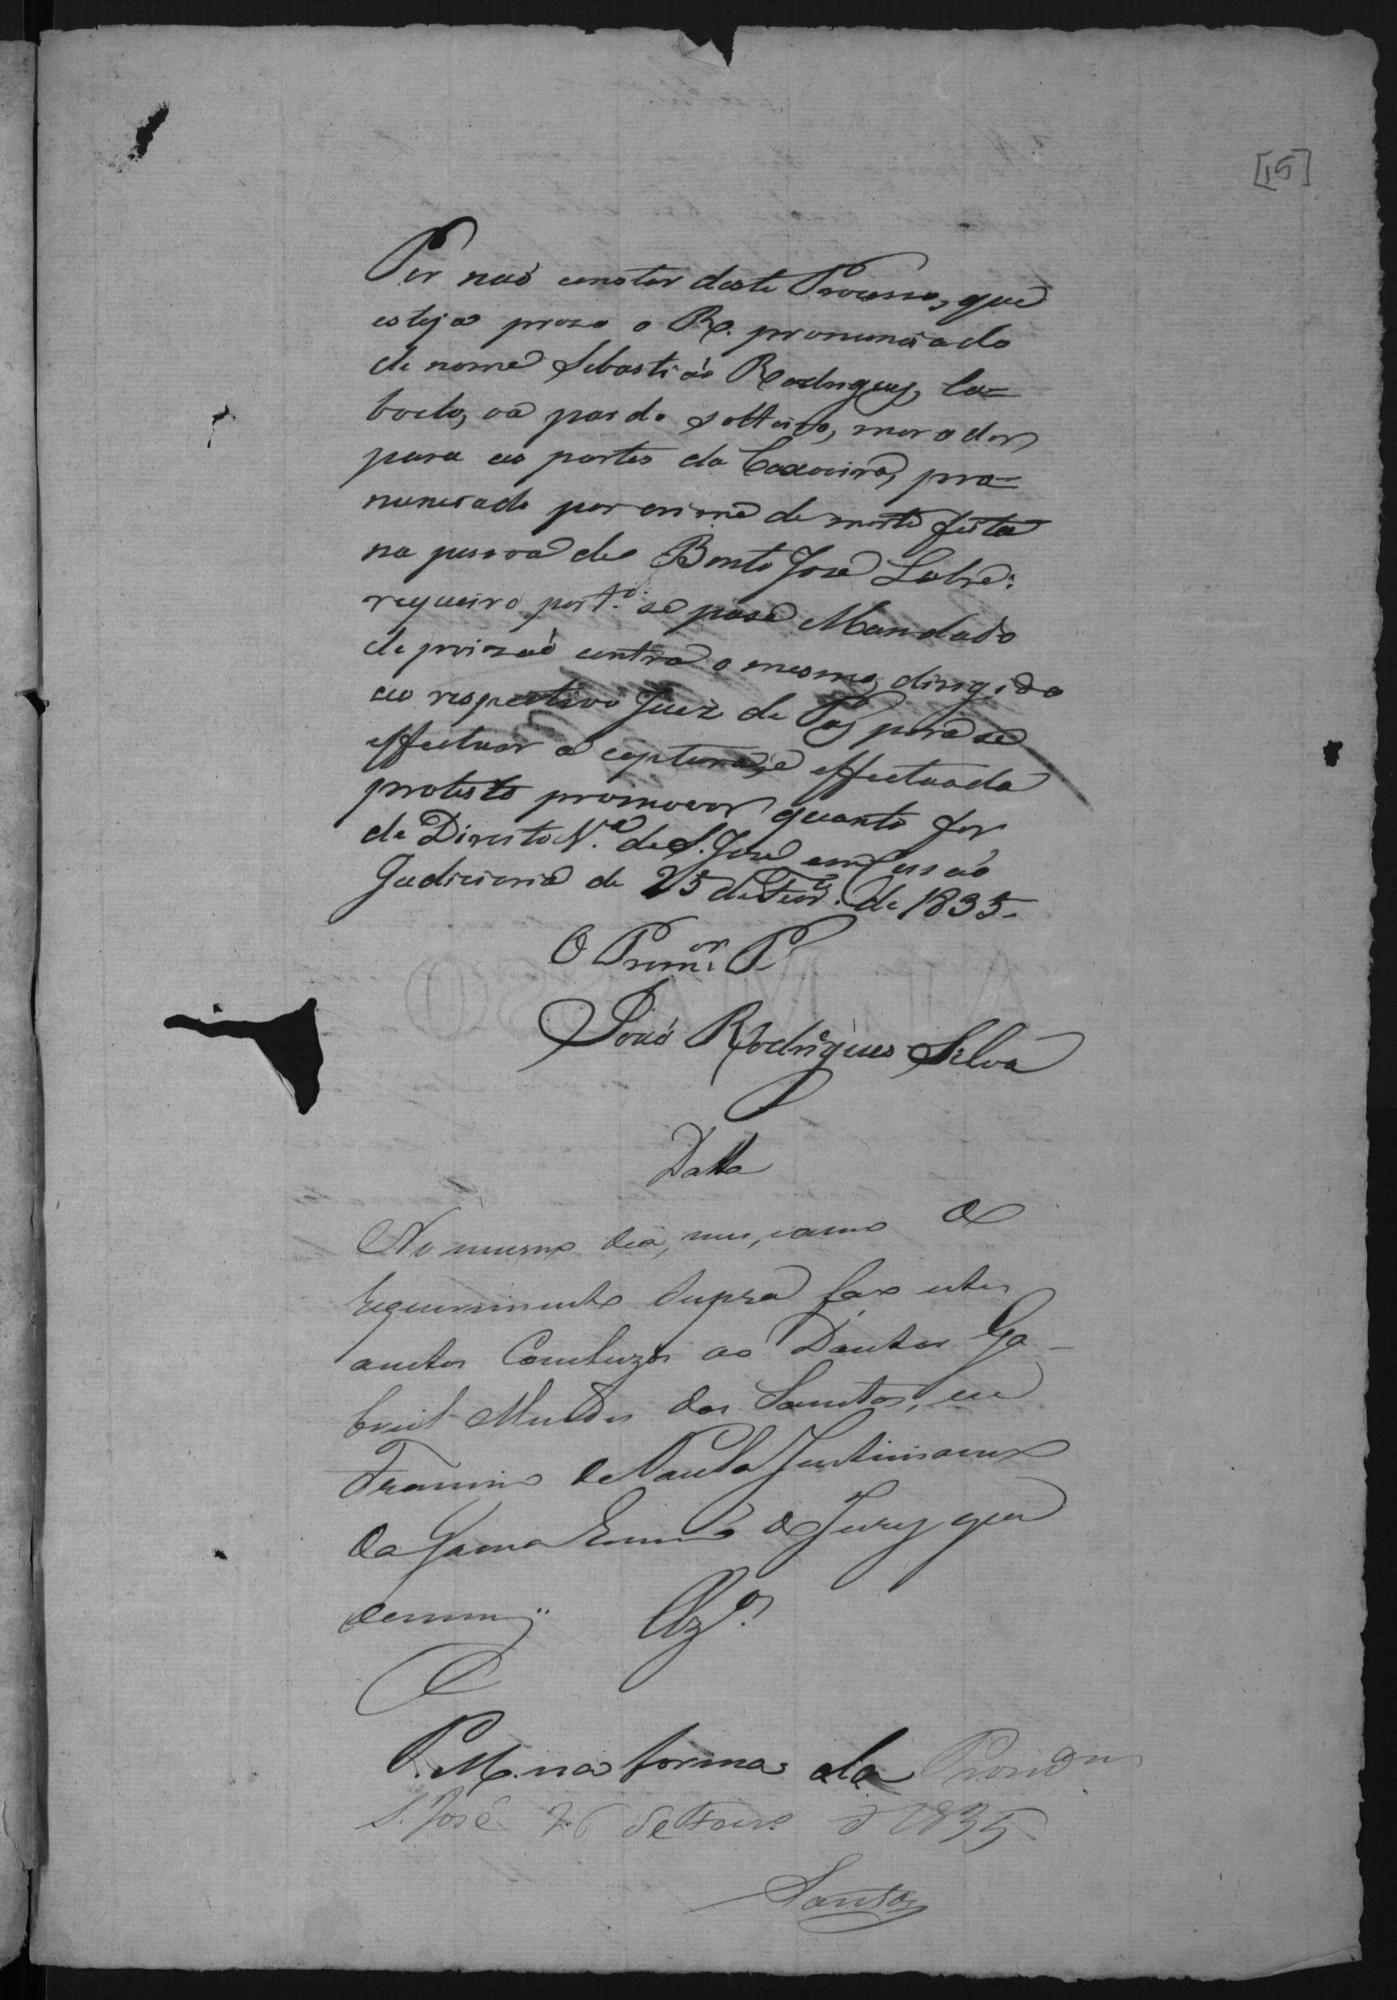 [15]
Por naõ constar deste Processo, que
esteja prezo o R. pronunciado
de nome Sebastiaõ Rodrigues, Ca=
boclo, ou pardo solteiro, morador
para as partes da Caxoeira, pro=
nunciado por crime de morte feita
na pessoa de Bento José Lebre:
requeiro port.º se passe Mandado
de prizaõ contra o mesmo, dirigido
ao respectivo Juiz de Paz para se
effectuar a captura, e effectuada
protesto promover quanto for
de Direito V.ª de S. José em Cessaõ
Judiciaria de 25 de Fevr.º de 1835.
O Prom.or P.
Joaõ Rodrigues Silva
Datta
No mesmo dia, mes, e anno de
requerimento supra faço estes
auctos Concluzos ao Doutor Ga-
briel Mendes dos Santos, eu
Francisco de Paula Justiniano
da Gama Escrivaõ de Jury que
escrevy
Clz.os
P. M. na forma da
S. José 26 de Fevr.º d 1835
Santos
ALMASSO